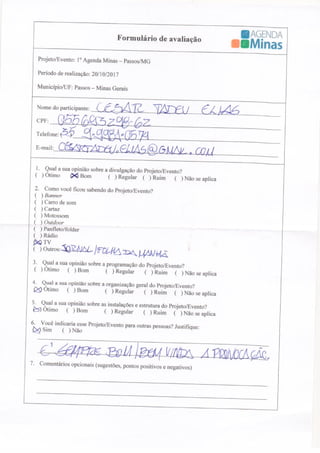 Formulário de avaliação
AGENDA
Minas
Projeto/Evento: 1º Agenda Minas – Passos/MG
Período de realização: 20/10/2017
Município/UF: Passos – Minas Gerais
Nome do participante: CESAR TADEU ELIAS
CPF:
Telefone:
E-mail: CESARTADEU.ELIAS@GMAIL.COM
1. Qual a sua opinião sobre a divulgação do Projeto/Evento?
( ) Ótimo (X) Bom ( ) Regular ( ) Ruim ( ) Não se aplica
2. Como você ficou sabendo do Projeto/Evento?
( ) Banner
( ) Carro de som
( ) Cartaz
( ) Motossom
( ) Outdoor
( ) Panfleto/folder
( ) Rádio
(X) TV
( ) Outros: JORNAL / FOLHA DA MANHÃ
3. Qual a sua opinião sobre a programação do Projeto/Evento?
( ) Ótimo ( ) Bom ( ) Regular ( ) Ruim ( ) Não se aplica
4. Qual a sua opinião sobre a organização geral do Projeto/Evento?
(X) Ótimo ( ) Bom ( ) Regular ( ) Ruim ( ) Não se aplica
5. Qual a sua opinião sobre as instalações e estrutura do Projeto/Evento?
(X) Ótimo ( ) Bom ( ) Regular ( ) Ruim ( ) Não se aplica
6. Você indicaria esse Projeto/Evento para outras pessoas? Justifique:
(X) Sim ( ) Não
É SEMPRE BOM / BEM VINDA A PROVOCAÇÃO
7. Comentários opcionais (sugestões, pontos positivos e negativos)